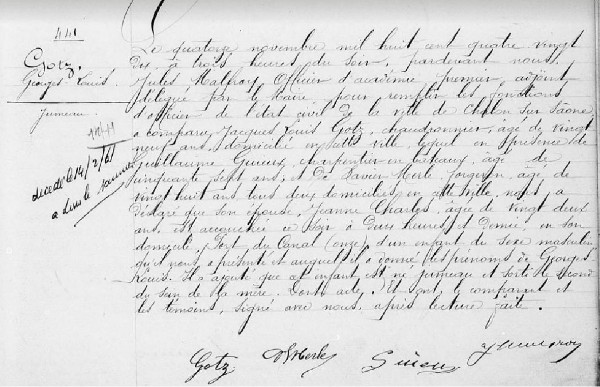 441
Gotz,
Georges Louis.
Jumeau
décédé le 14/2/61
a Lons le Saunier
Le quatorze novembre mil huit cent quatre vingt
dix, à trois heures du soir, pardevant nous,
Jules Mathey, Officier d'académie, premier adjoint
délégué par le Maire pour remplir les fonctions
d'officier de l'état civil de la ville de Chalon sur Saône
a comparu, Jacques Louis Gotz, chaudronnier, âgé de vingt
neuf ans, domicilié en cette ville, lequel en présence de
Guillaume charpentier en bateaux, âgé de
cinquante sept ans, et de Xavier Merle âgé de
vingt huit ans, tous deux domiciliés en cette ville, nous a
déclaré que son épouse, Jeanne Charles, âgée de vingt deux
ans, est accouchée ce soir à deux heures et demie, en son
domicile, Port du Canal (onze) d'un enfant du sexe masculin
qu'il nous a présenté et auquel il a donné les prénoms de Georges
Louis. Il a ajouté que cet enfant est né jumeau et sorti le second
du sein de la mère. Dont acte. Et ont, le comparant et
les témoins, signé avec nous, après lecture faite.
Gotz Merle